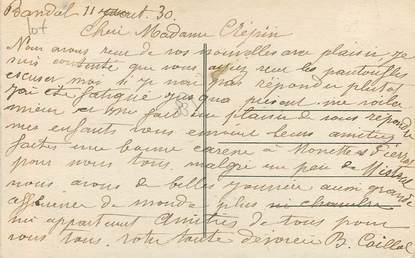 Bandol 11 aout. 30.
Cheri Madame Crépin
Nous avons reçu de vos nouvelles avec plaisir je
suis contente que vous ayiez reçu les pantoufles
excuser moi si je nai pas répondu plutot
jai été fatigué jusqua présent. me voila
mieux et me fait un plaisir de vous répondre
mes enfants vous envoient leurs amitiés
faites une bonne caresse à Monette et Pierrot
pour nous tous, malgré un peu de Mistral
nous avons de belles journée aussi grande
de monde plus ni chambre
ni appartement Amitiés de tous pour
vous tous. votre toute dévouée B. Caillol